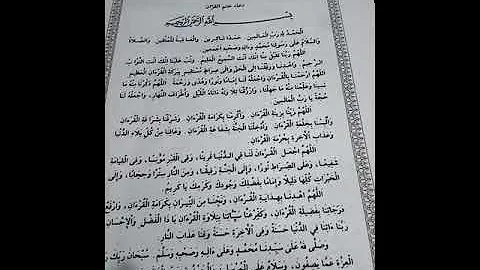 دعاء ختم القرآن
بسم الله الرحمن الرحيم
الحمد لله رب العالمين حمدا شاكرين والعاقبة للمتقين والصلاة
والسلام على رسولنا محمد وآله وصحبه أجمعين
اللهم ربنا تقبل منا إنك أنت السميع العليم وتب علينا إنك أنت التواب
الرحيم واهدنا ووفقنا إلى الحق وإلى صراط مستقيم ببركة القرءان العظيم
اللهم ارحمنا بالقرءان واجعله لنا إماما ونورا وهدى ورحمة اللهم ذكرنا منه ما
نسينا وعلمنا منه ما جهلنا وارزقنا تلاوته آناء الليل وأطراف النهار واجعله لنا
حجة يا رب العالمين
اللهم زينا بزينة القرءان وأكرمنا بكرامة القرءان وشرفنا بشرافة القرءان
وألبسنا بخلعة القرءان وأدخلنا الجنة بشفاعة القرءان وعافنا من كل بلاء الدنيا
وعذاب الآخرة بحرمة القرءان
اللهم اجعل القرءان لنا في الدنيا قرينا وفي القبر مونسا وفي القيامة
شفيعا وعلى الصراط نورا وإلى الجنة رفيقا ومن النار سترا وحجابا وإلى
الخيرات كلها دليلا وإماما بفضلك وجودك وكرمك يا كريم
اللهم اهدنا بهداية القرءان ونجنا من النيران بكرامة القرءان وارفع
درجاتنا بفضيلة القرءان وكفر عنا سيئاتنا بتلاوة القرءان يا ذا الفضل والإحسان
ربنا ءاتنا في الدنيا حسنة وفي الآخرة حسنة وقنا عذاب النار
وصلى الله على سيدنا محمد وعلى ءاله وصحبه وسلم سبحان ربك رب
العزة عما يصفون وسلام على المرسلين